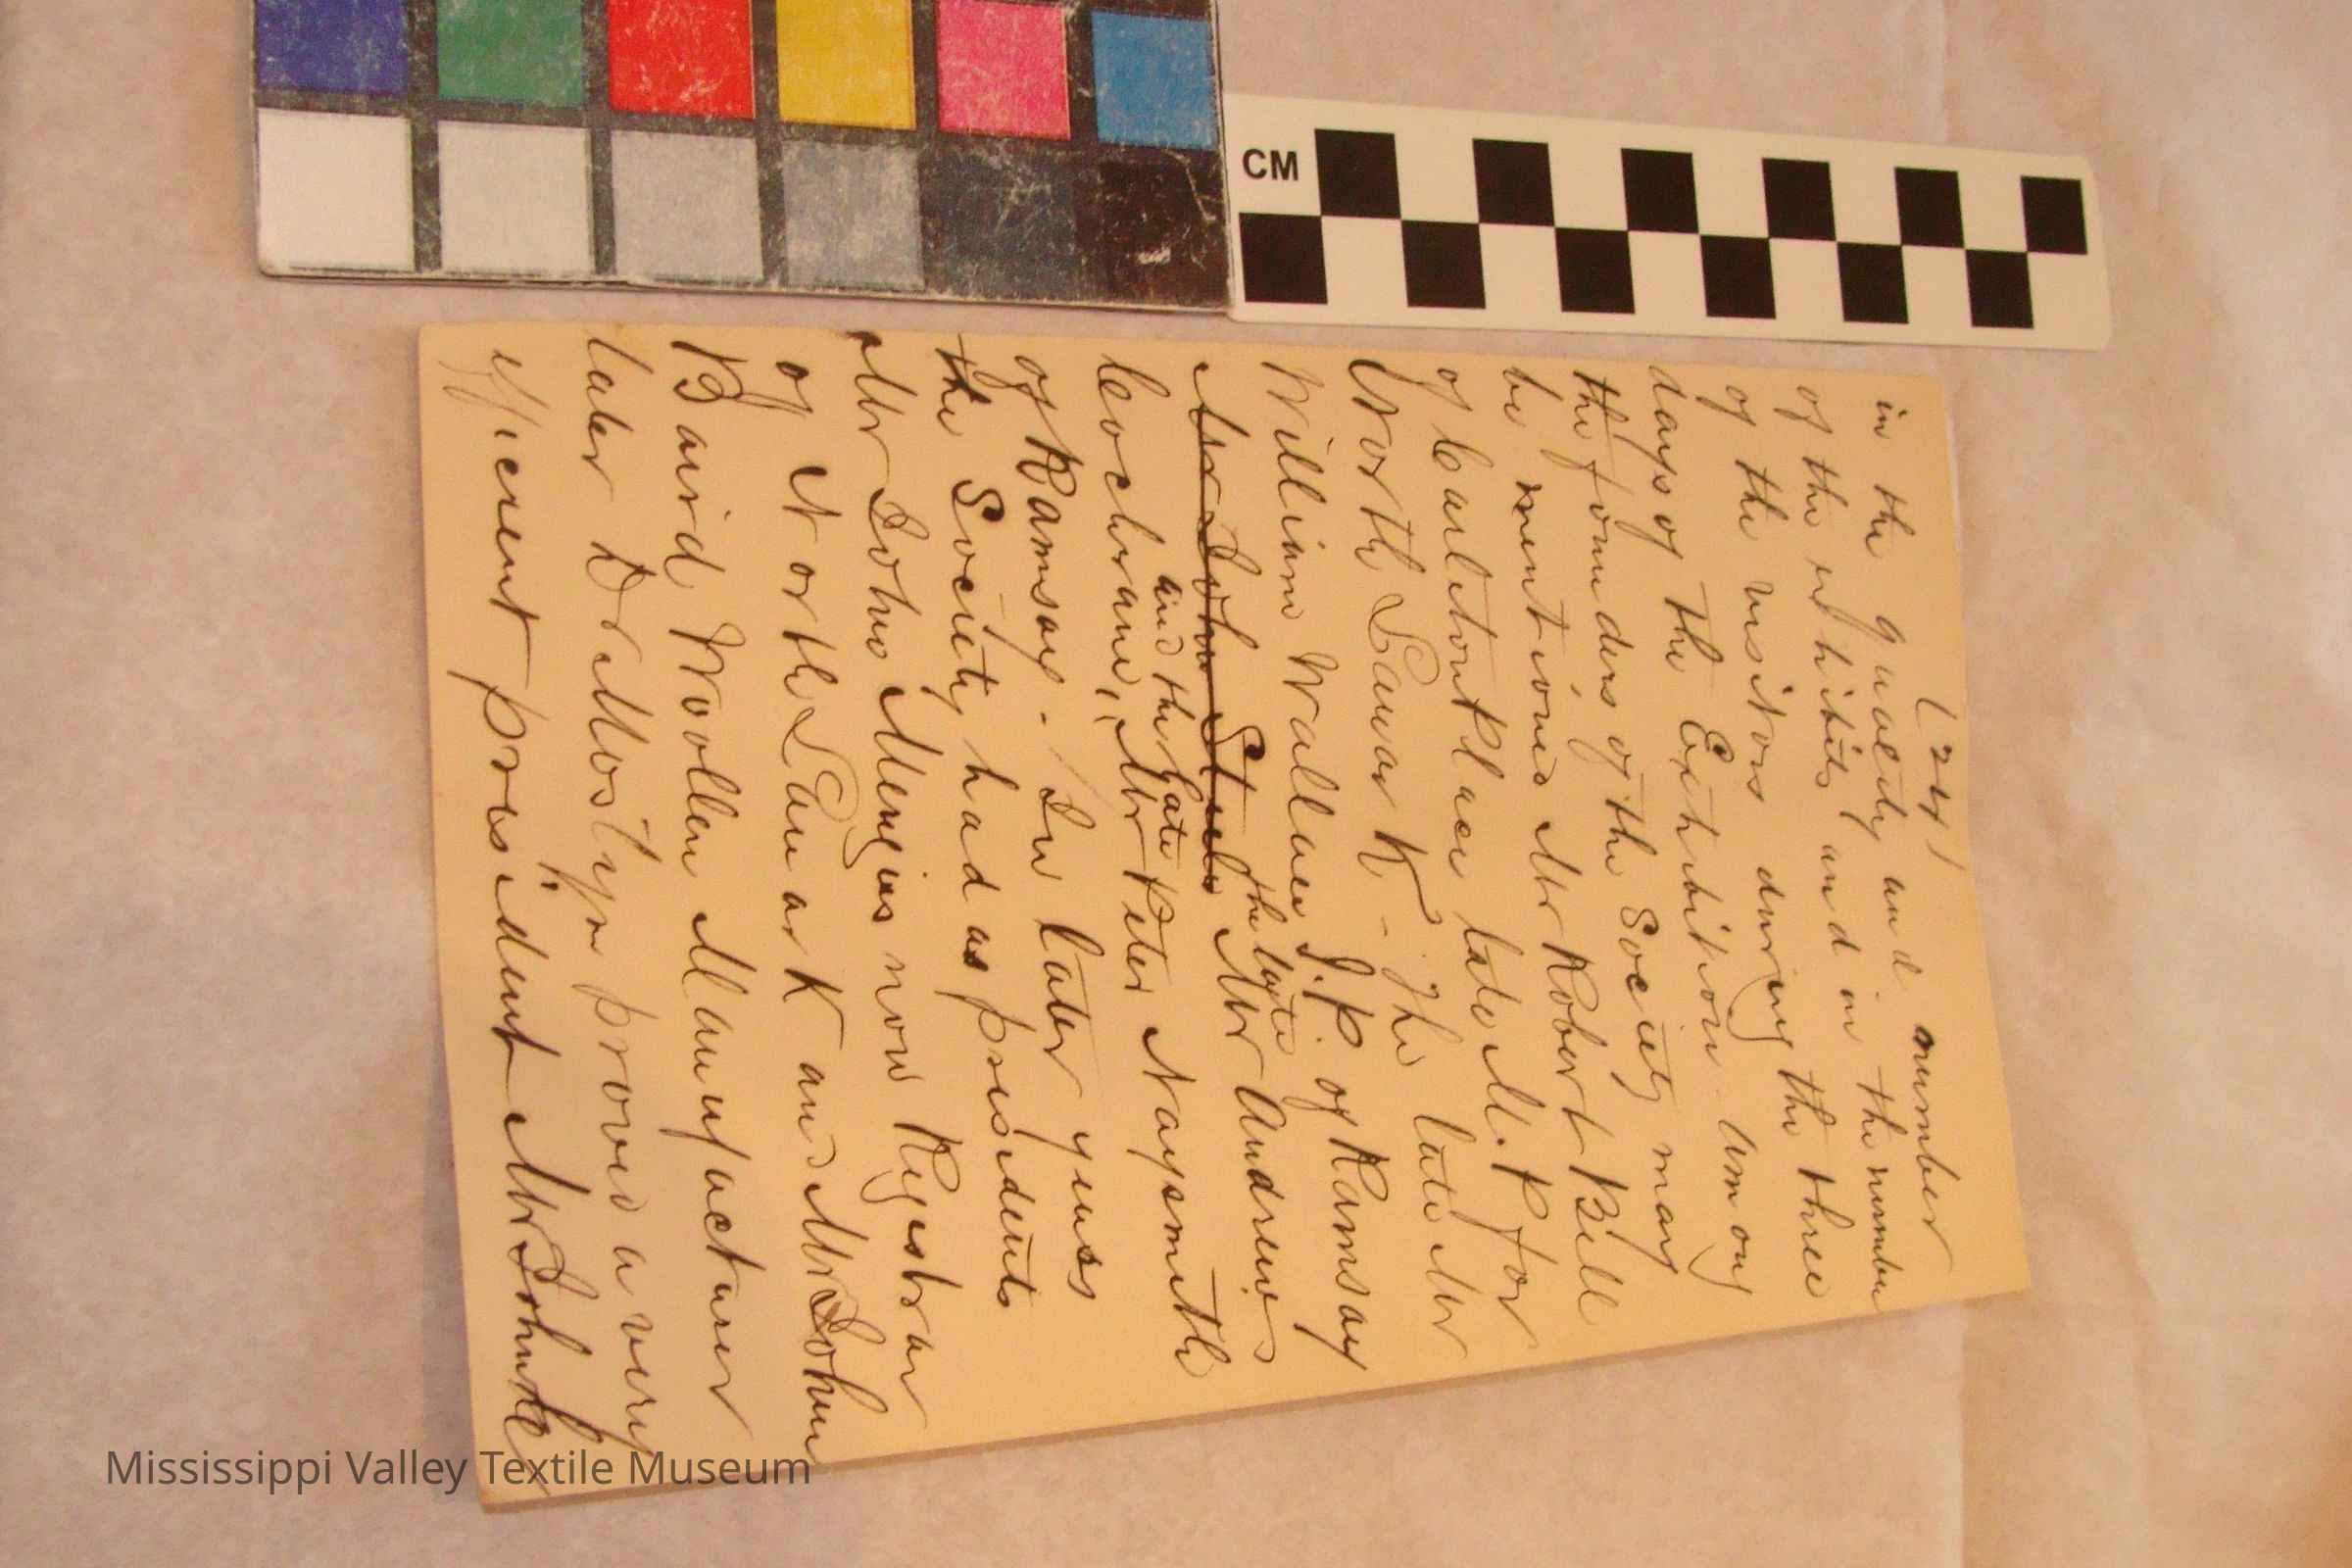 CM
(24)
in the quality and number
of the exhibits and in the number
of the visitors during the three
days of the Exhibition - Among
the founders of the Society may
be mentioned Mr Robert Bell
of Carleton Place late M.P for
North Lanark - The late Mr
William Wallace J.P. of Ramsay
the late
Mr John Steele Mr Andrew
and the late
Cochrane, Mr Peter Naysmith
of Ramsay - In later years
the Society had as presidents
Mr John Menzies now Registrar
of North Lanark and Mr John
Baird Woollen Manufacturer
later Dr Mostyn proved a very
efficient president Mr John
Mississippi Valley Textile Museum